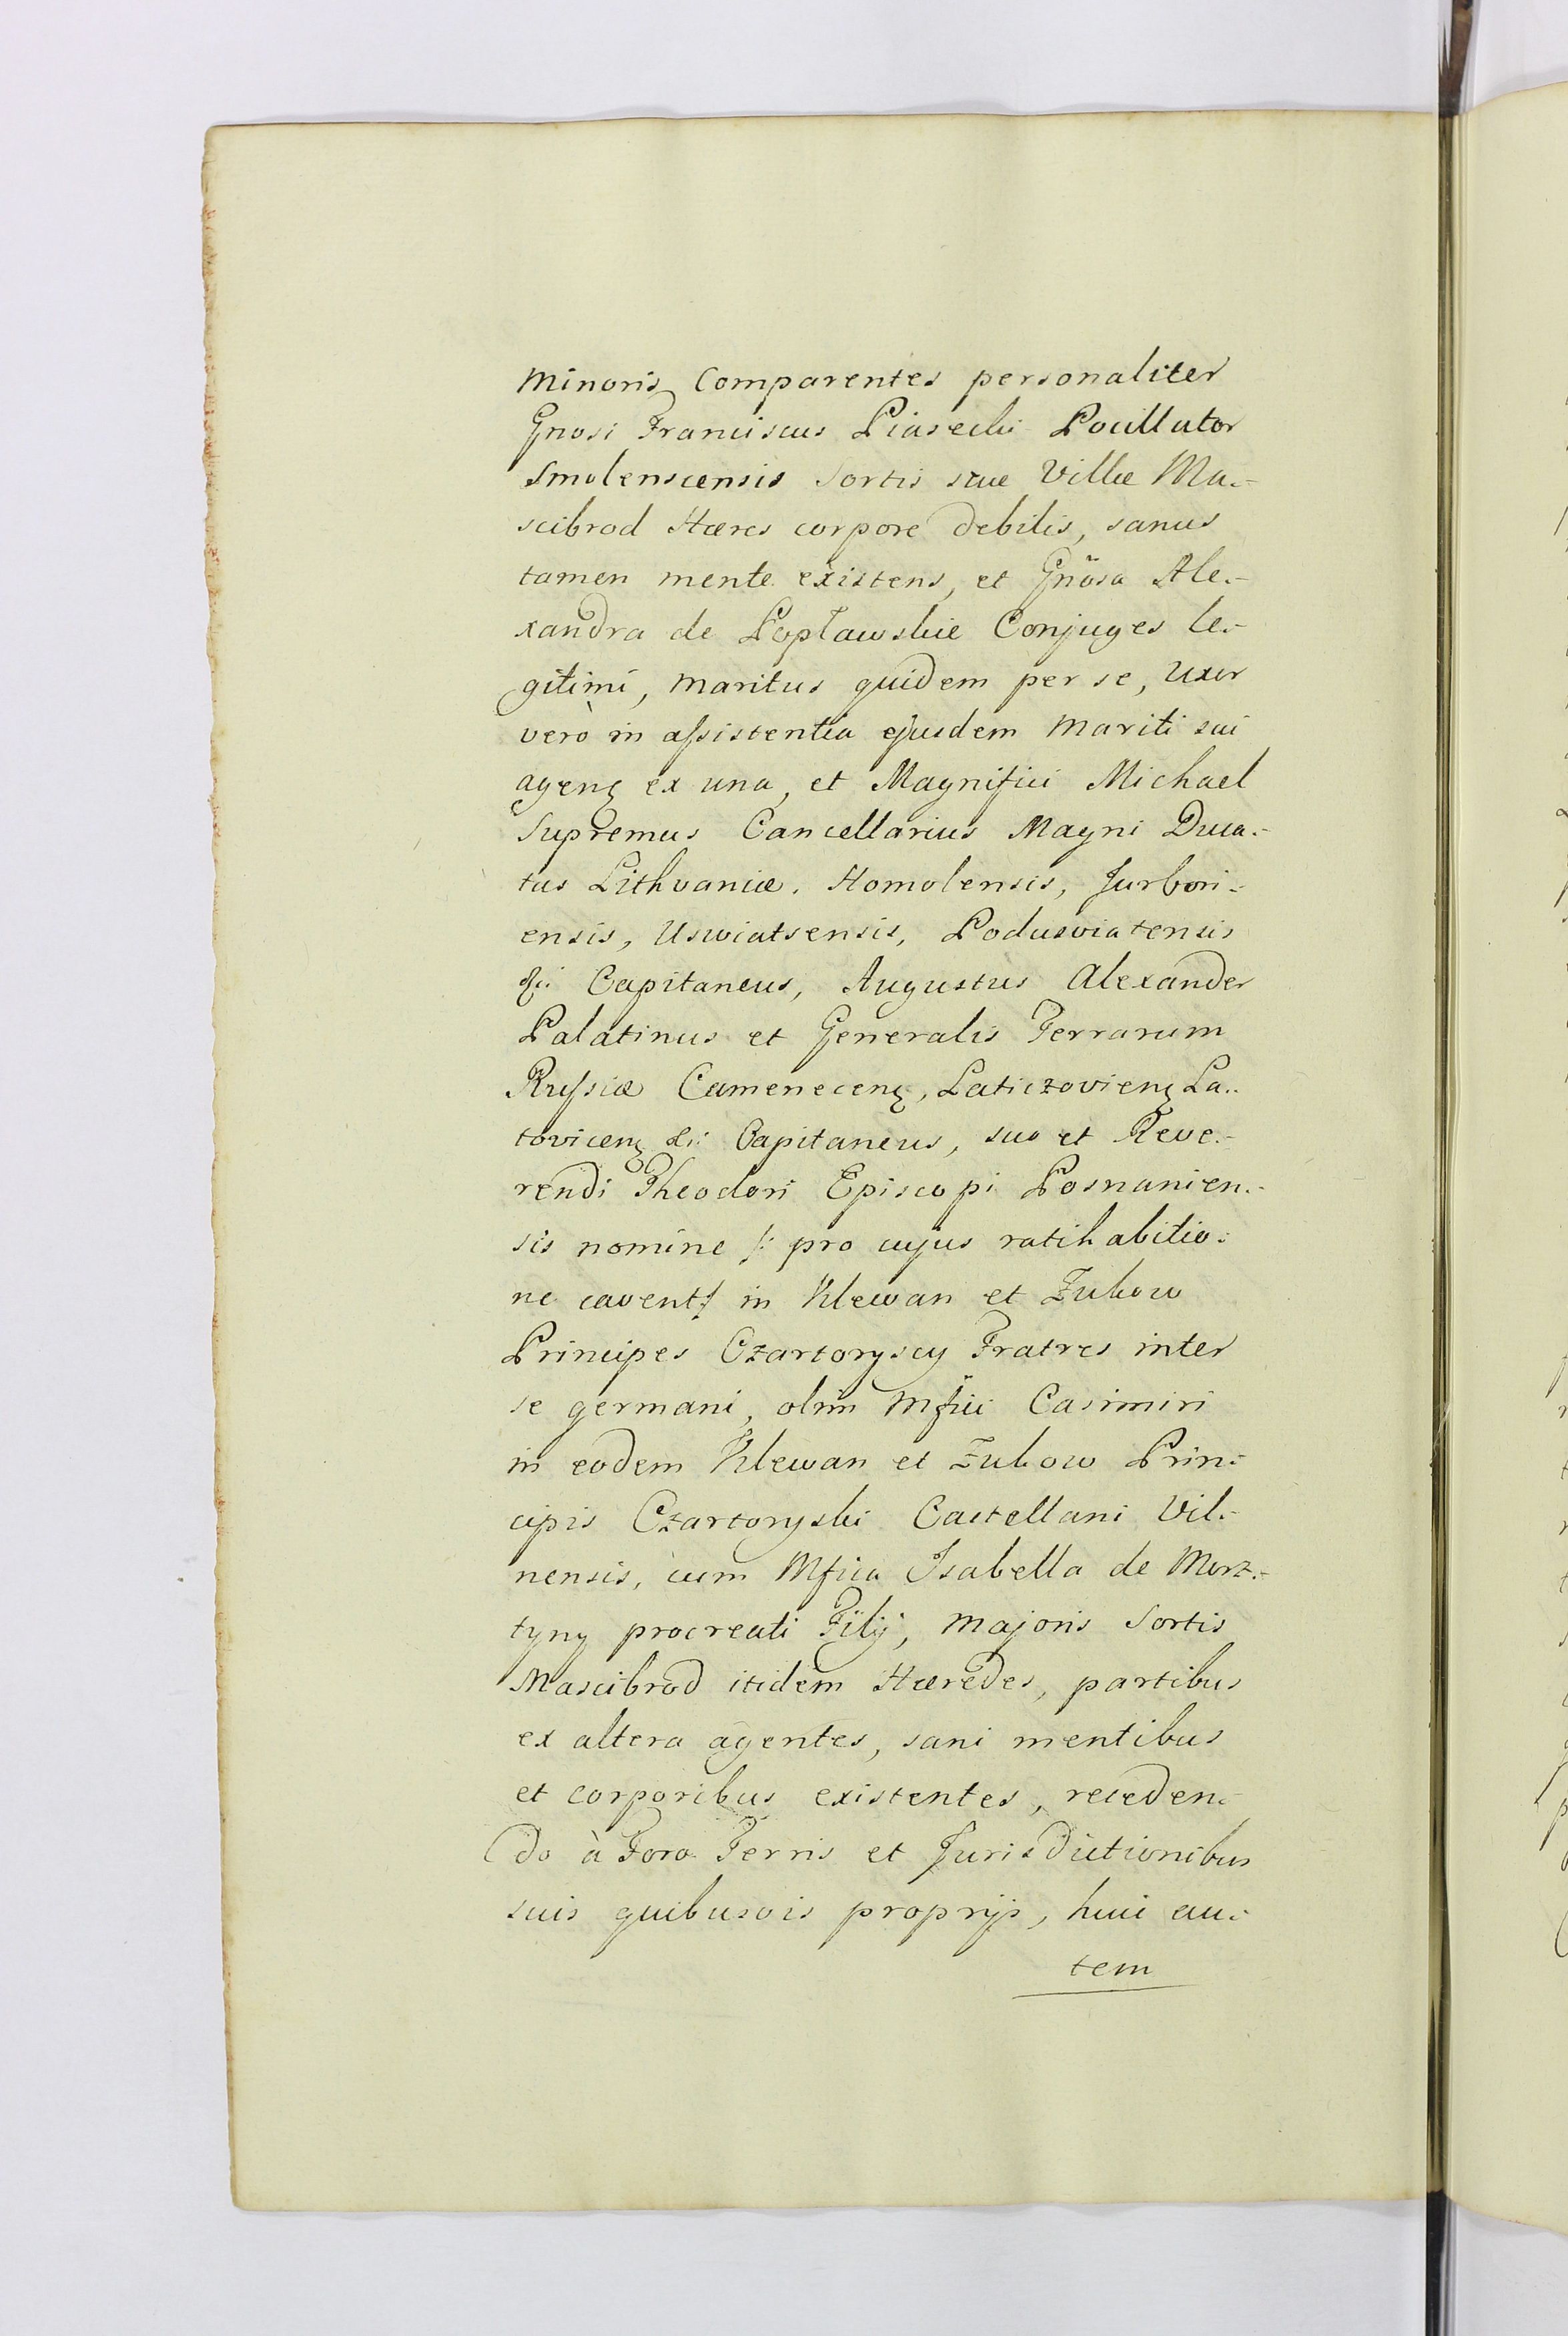 minoris, Comparentes personaliter
Gnosi Franciscus Piasecki Pocillator
Smolenscensis Sortis suæ Villæ Ma:-
scibrod Hæres corpore debilis, sanus
tamen mente existens, et Gnosa Ale:-
xandra de Popławskie Conjuges le:-
gitimi, maritus quidem per se, Uxor
verò in assistentia ejusdem Mariti sui
agens ex una, et Magnifici Michael
Supremus Cancellarius Magni Duca:-
tus Lithvaniæ. Homolensis, Jurbori:-
ensis, Uswiatsensis, Podusviatensis
&c: Capitaneus, Augustus Alexander
Palatinus et Generalis Terrarum
Russiæ Camenecens, Laticzoviens La:-
tovicens &c: Capitaneus, suo et Reve:-
rendi Theodori Episcopi Posnanien:-
sis nomine /: pro cujus ratihabitio:-
ne cavent :/ in Klewan et Żukow
Principes Czartoryscy Fratres inter
se germani, olim Mfici Casimiri
in eodem Klewan et Żukow Prin:-
cipis Czartoryski Castellani Vil:-
nensis, cum Mfica Isabella de Morz:-
tyny procreati Filij, majoris Sortis
Mascibrod itidem Hæredes, partibus
ex altera agentes, sani mentibus
et corporibus existentes, receden:-
do à Foro Terris et Jurisdictionibus
suis quibusvis proprijs, huic au:-
tem